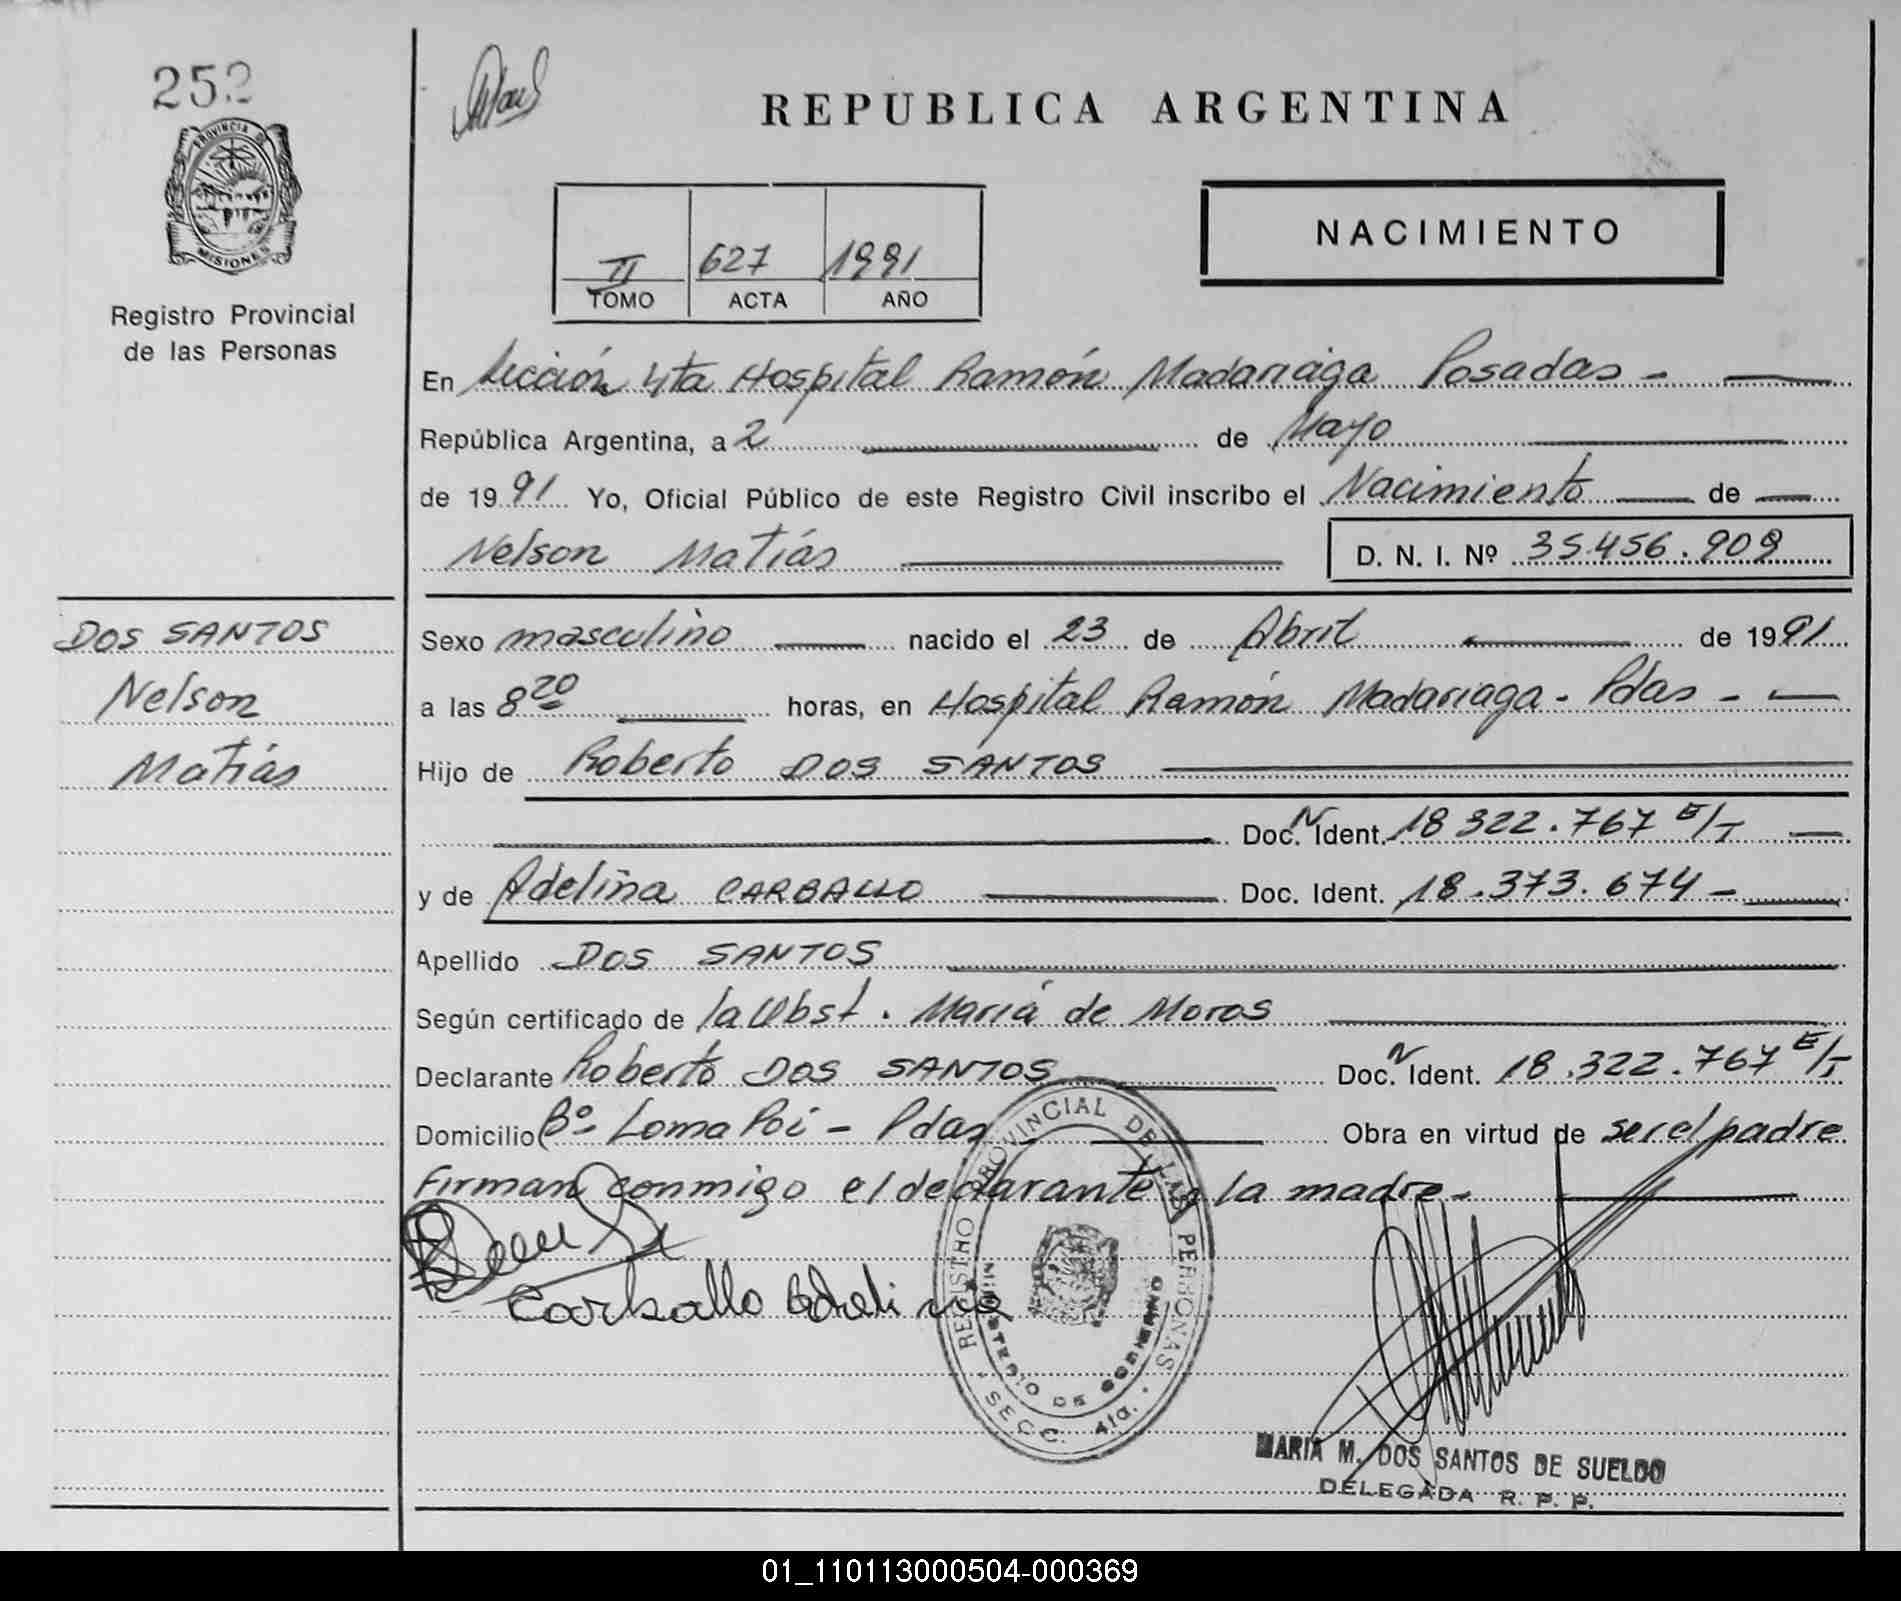 252
REPUBLICA ARGENTINA
PROVINCIA DE
MISIONES
Registro Provincial
de las Personas
NACIMIENTO
II 627 1991
TOMO ACTA AÑO
En Sección 4ta Hospital Ramón Madariaga Posadas -
República Argentina, a 2 de Mayo
de 1991 Yo, Oficial Público de este Registro Civil inscribo el Nacimiento de
Nelson Matías D. N. I. Nº 35.456.909
DOS SANTOS
Nelson
Matías
Sexo masculino nacido el 23 de Abril de 1991
a las 8 20 horas, en Hospital Ramón Madariaga - Pdas -
Hijo de Roberto DOS SANTOS
Doc. N Ident. 18 322.767 E/T
y de Adelina CARBALLO Doc. Ident. 18.373.674 -
Apellido DOS SANTOS
Según certificado de la Obst. María de Moros
Declarante Roberto DOS SANTOS Doc. N Ident. 18.322.767 E/T
Domicilio Bº- Loma Poi - Pdas Obra en virtud de ser el padre
Firman conmigo el declarante y la madre -
Carballo Adelina
REGISTRO PROVINCIAL DE LAS PERSONAS
MINISTERIO DE GOBIERNO
SECC. 4ta.
MARIA M. DOS SANTOS DE SUELDO
DELEGADA R. P. P.
01_110113000504-000369